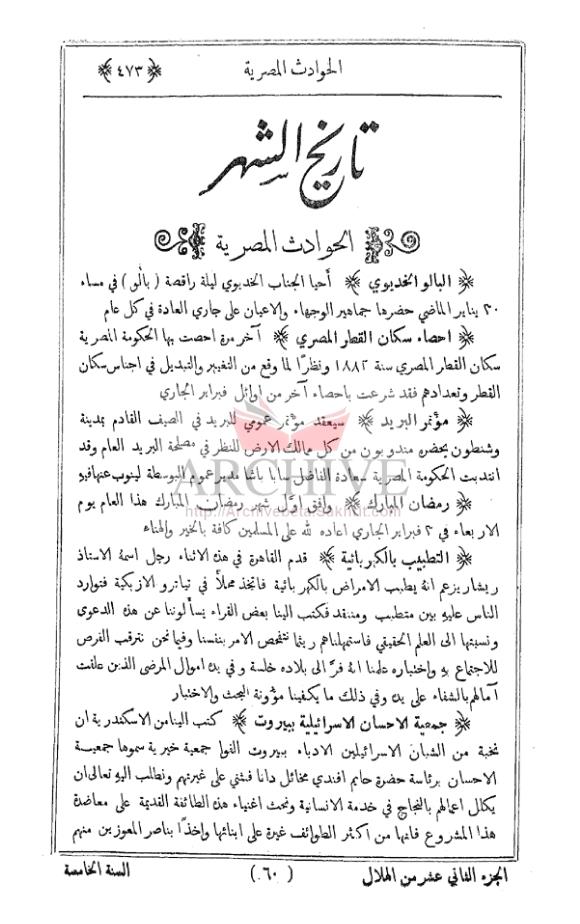 الحوادث المصرية ﴿ ٤٧٣ ﴾
تاريخ الشهر
الحوادث المصرية
﴿ البالو الخديوي ﴾ أحيا الجناب الخديوي ليلة راقصة ( بالو ) في مساء
٢٠ يناير الماضي حضرها جماهير الوجهاء والاعيان على جاري العادة في كل عام
﴿ احصاء سكان القطر المصري ﴾ آخر مرة احصت بها الحكومة المصرية
سكان القطر المصري سنة ١٨٨٢ ونظرًا لما وقع من التغيير والتبديل في اجناس سكان
القطر وتعدادهم فقد شرعت باحصاء آخر من اوائل فبراير الجاري
﴿ مؤتمر البريد ﴾ سيعقد مؤتمر عمومي للبريد في الصيف القادم بمدينة
وشنطون يحضره مندوبون من كل ممالك الارض للنظر في مصلحة البريد العام وقد
انتدبت الحكومة المصرية سعادة الفاضل سابا باشا مدير عموم البوسطة لينوب عنها فيه
﴿ رمضان المبارك ﴾ وافق اوّل شهر رمضان المبارك هذا العام يوم
الاربعاء في ٢ فبراير الجاري اعاده الله على المسلمين كافة بالخير والهناء
﴿ التطبيب بالكهربائية ﴾ قدم القاهرة في هذه الاثناء رجل اسمهُ الاستاذ
ريشار يزعم انهُ يطبب الامراض بالكهربائية فاتخذ محلاً في تياترو الازبكية فتوارد
الناس عليهِ بين متطبب ومنتقد فكتب الينا بعض القراء يسألوننا عن هذه الدعوى
ونسبتها الى العلم الحقيقي فاستمهلناهم ريثما نتفحص الامر بنفسنا وفيما نحن نترقب الفرص
للاجتماع بهِ واختباره علمنا انهُ فرَّ الى بلاده خلسة وفي يده اموال المرضى الذين علقت
آمالهم بالشفاء على يده وفي ذلك ما يكفينا مؤونة البحث والاختبار
﴿ جمعية الاحسان الاسرائيلية ببيروت ﴾ كتب الينا من الاسكندرية ان
نخبة من الشبان الاسرائيلين الادباء ببيروت الفوا جمعية خيرية سموها جمعية
الاحسان برئاسة حضرة حايم افندي مخائل دانا فنثني على غيرتهم ونطلب اليهِ تعالى ان
يكلل اعمالهم بالنجاح في خدمة الانسانية ونحث اغنياء هذه الطائفة القديمة على معاضدة
هذا المشروع فانها من اكثر الطوائف غيرة على ابنائها واخذًا بناصر المعوزين منهم
الجزء الثاني عشر من الهلال ( ٦٠ ) السنة الخامسة
ARCHIVE